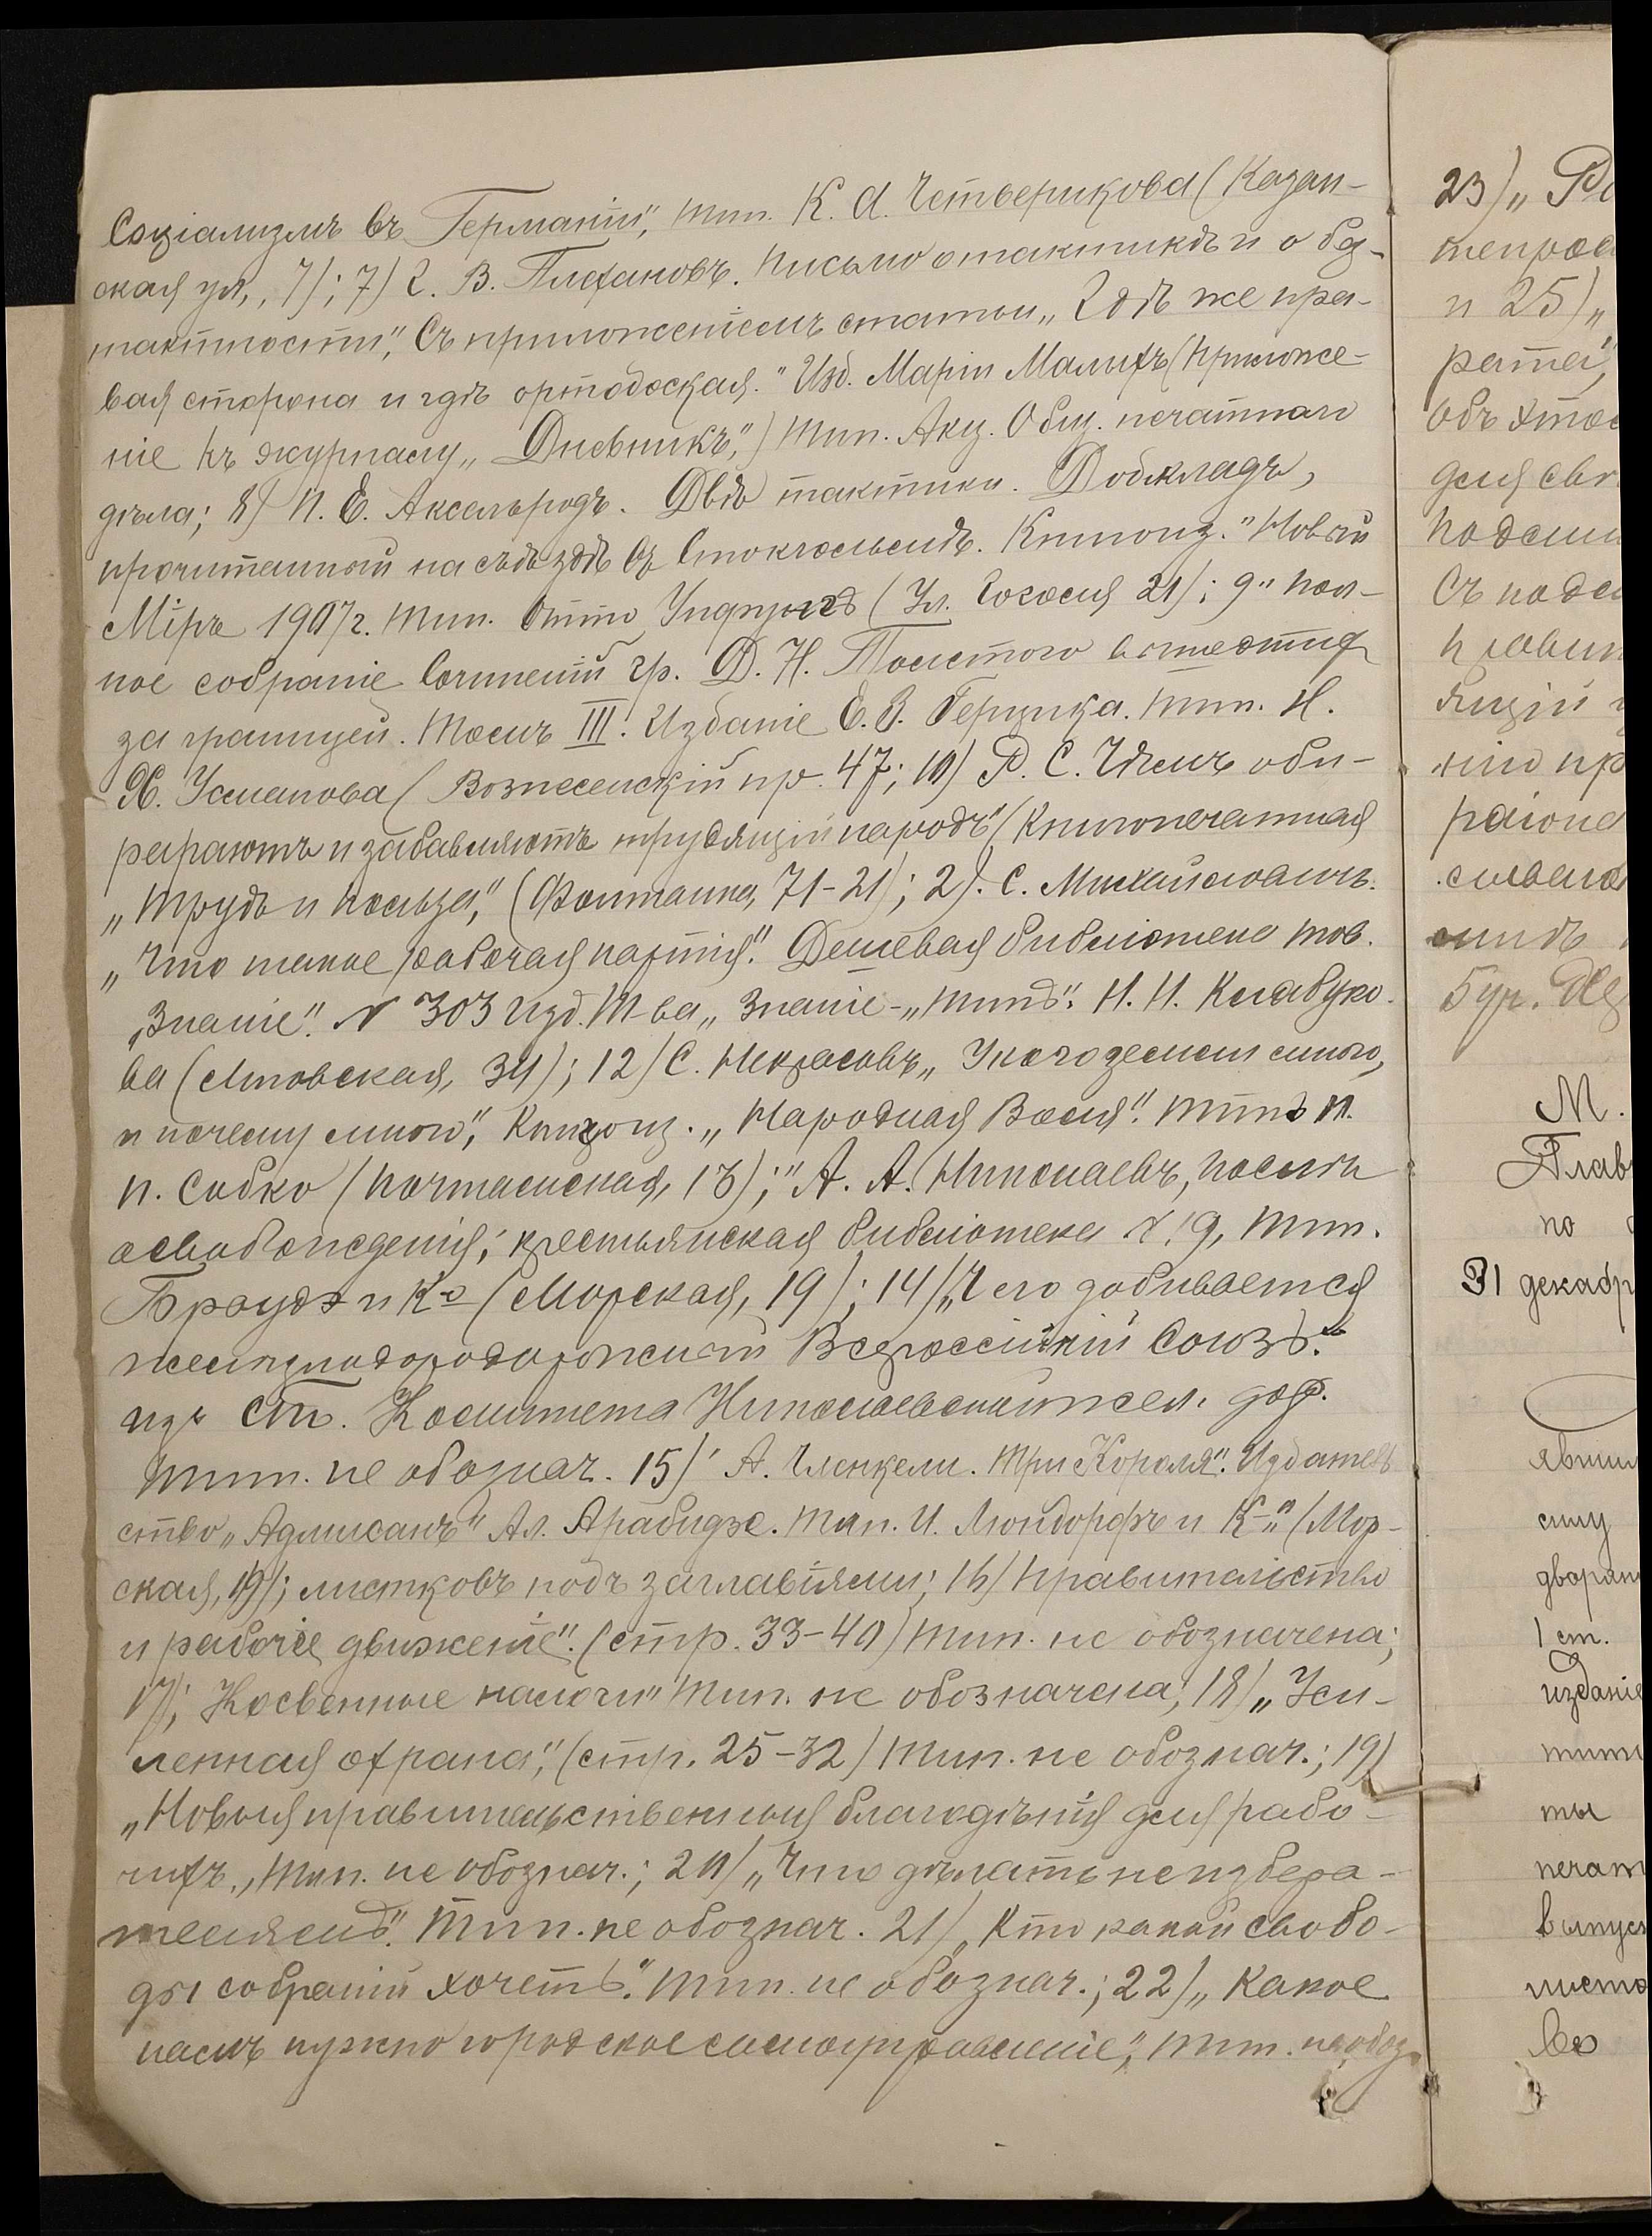 Соціализмъ въ Германіи", тип. К. А. Четверикова (Казан-
ская ул., 7); 7) Г. В. Плехановъ. Письмо о тактикѣ и о без-
тактности", Съ приложеніемъ статьи „Гдѣ же пра-
вая сторона и гдѣ ортодоская." Изд. Маріи Малыхъ (Приложе-
ніе къ журналу „Дневникъ",) Тип. Акц. Общ. печатнаго
дѣла; 8) П. Б. Аксельродъ. Двѣ тактики. Докладъ,
прочитанный на съѣздѣ въ Стокгольмѣ. Книгоизд." Новый
Міръ 1907 г. Тип. Отто Унфугъ (Ул. Гоголя 21); 9" Пол-
ное собраніе Сочиненій гр. Л. Н. Толстого вышедшихъ
за границей. Томъ III. Изданіе Е. В. Герцика. Тип. Н.
Х. Усманова (Вознесенскій пр. 47; 10) Р. С. Чѣмъ оби-
раютъ и забавляютъ трудящій народъ" (Книгопечатная
„Трудъ и Польза", (Фонтанка, 71-21); 2). С. Михайловичъ.
„Что такое рабочая партія". Дешевая библіотека тов.
„Знаніе". № 303 изд. Т-ва „Знаніе-„Тип." Н. Н. Клобуко-
ва (Литовская, 34); 12) С. Некрасовъ „У кого земли много,
и почему много", Книгоизд. „Народная Воля". Тип. П.
П. Сойкo (Почтамтская, 13);" А. А. Николаевъ,
освобожденія; крестьянская библіотека № 19, Тип.
Браудэ и Ко (Морская, 19); 14) „Чего добивается
желѣзнодородорожный Всероссійкій Союзъ."
изд. Ст. Комитета Николаевской жел. дор.
Тип. не обознач. 15) А. Цленкели. Три Короля". Издатель-
ство „Адмисанъ" Ал. Арабидзе. Тип. И. Люндорфъ и К-о" (Мор-
ская, 19); листковъ подъ заглавіями; 16) Правительство
и рабочіе движеніе". (стр. 33-40) тип. не обозначена;
17); Косвенные налоги" Тип. не обозначена; 18) „Уси-
ленная охрана", (стр. 25-32) Тип. не обознач.; 19)
„Новыя правительственныя благодѣянія для рабо-
чихъ., Тип. не обознач.; 20) „Что дѣлать неизбера-
телямъ". Тип. не обознач. 21) „Кто какой свобо-
ды собраній хочетъ." Тип. не обознач.; 22) „Какое
намъ нужно городское самоуправленіе", Тип. не обоз.
23) „Ра
непрое
и 25) „
рета",
Объ этом
для свѣ
Подли
Съ подл
31 декабр
М.
Глав
по
явши
силу
дворян
1 ст.
изданіе
типо
ты
печат
выпуск
листо
во